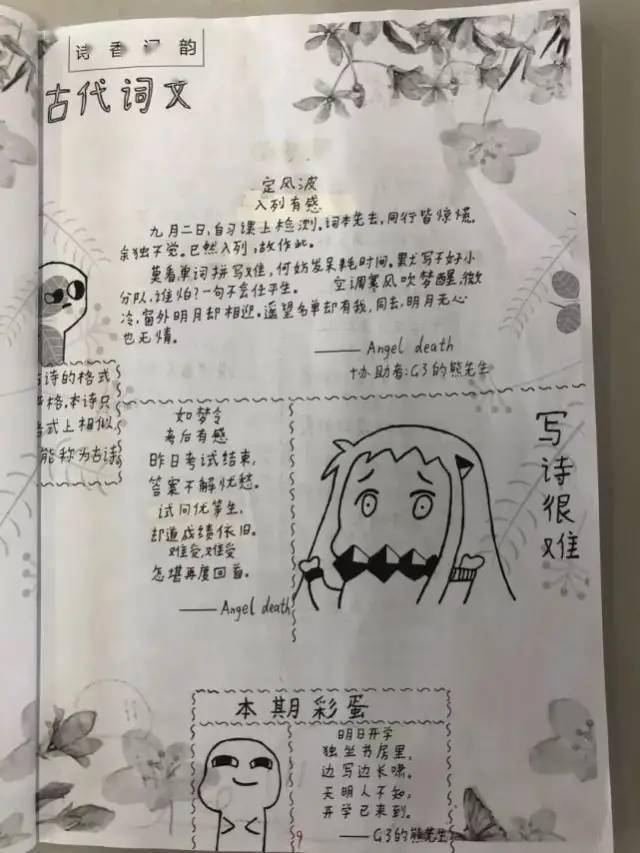 诗香词韵
古代词文
定风波
入列有感
九月二日,自习课上检测。词本先去,同行皆惊慌,
余独不觉。已然入列,故作此。
莫看单词拼写难,何妨发呆耗时间。默写不好小
分队,谁怕?一句不会任平生。 空调寒风吹梦醒,微
冷,窗外明月却相迎。遥望名单却有我,同去,明月无心
也无情。
—— Angel death
协助者:G3的熊先生
诗的格式
严格,本诗只
格式上相似
能称为古诗
如梦令
考后有感
昨日考试结束,
答案不解忧愁。
试问优等生,
却道成绩依旧。
难受,难受
怎堪再度回首。
—— Angel death
写诗很难
本期彩蛋
明日开学
独坐书房里,
边写边长啸。
天明人不知,
开学已来到。
—— G3的熊先生
9